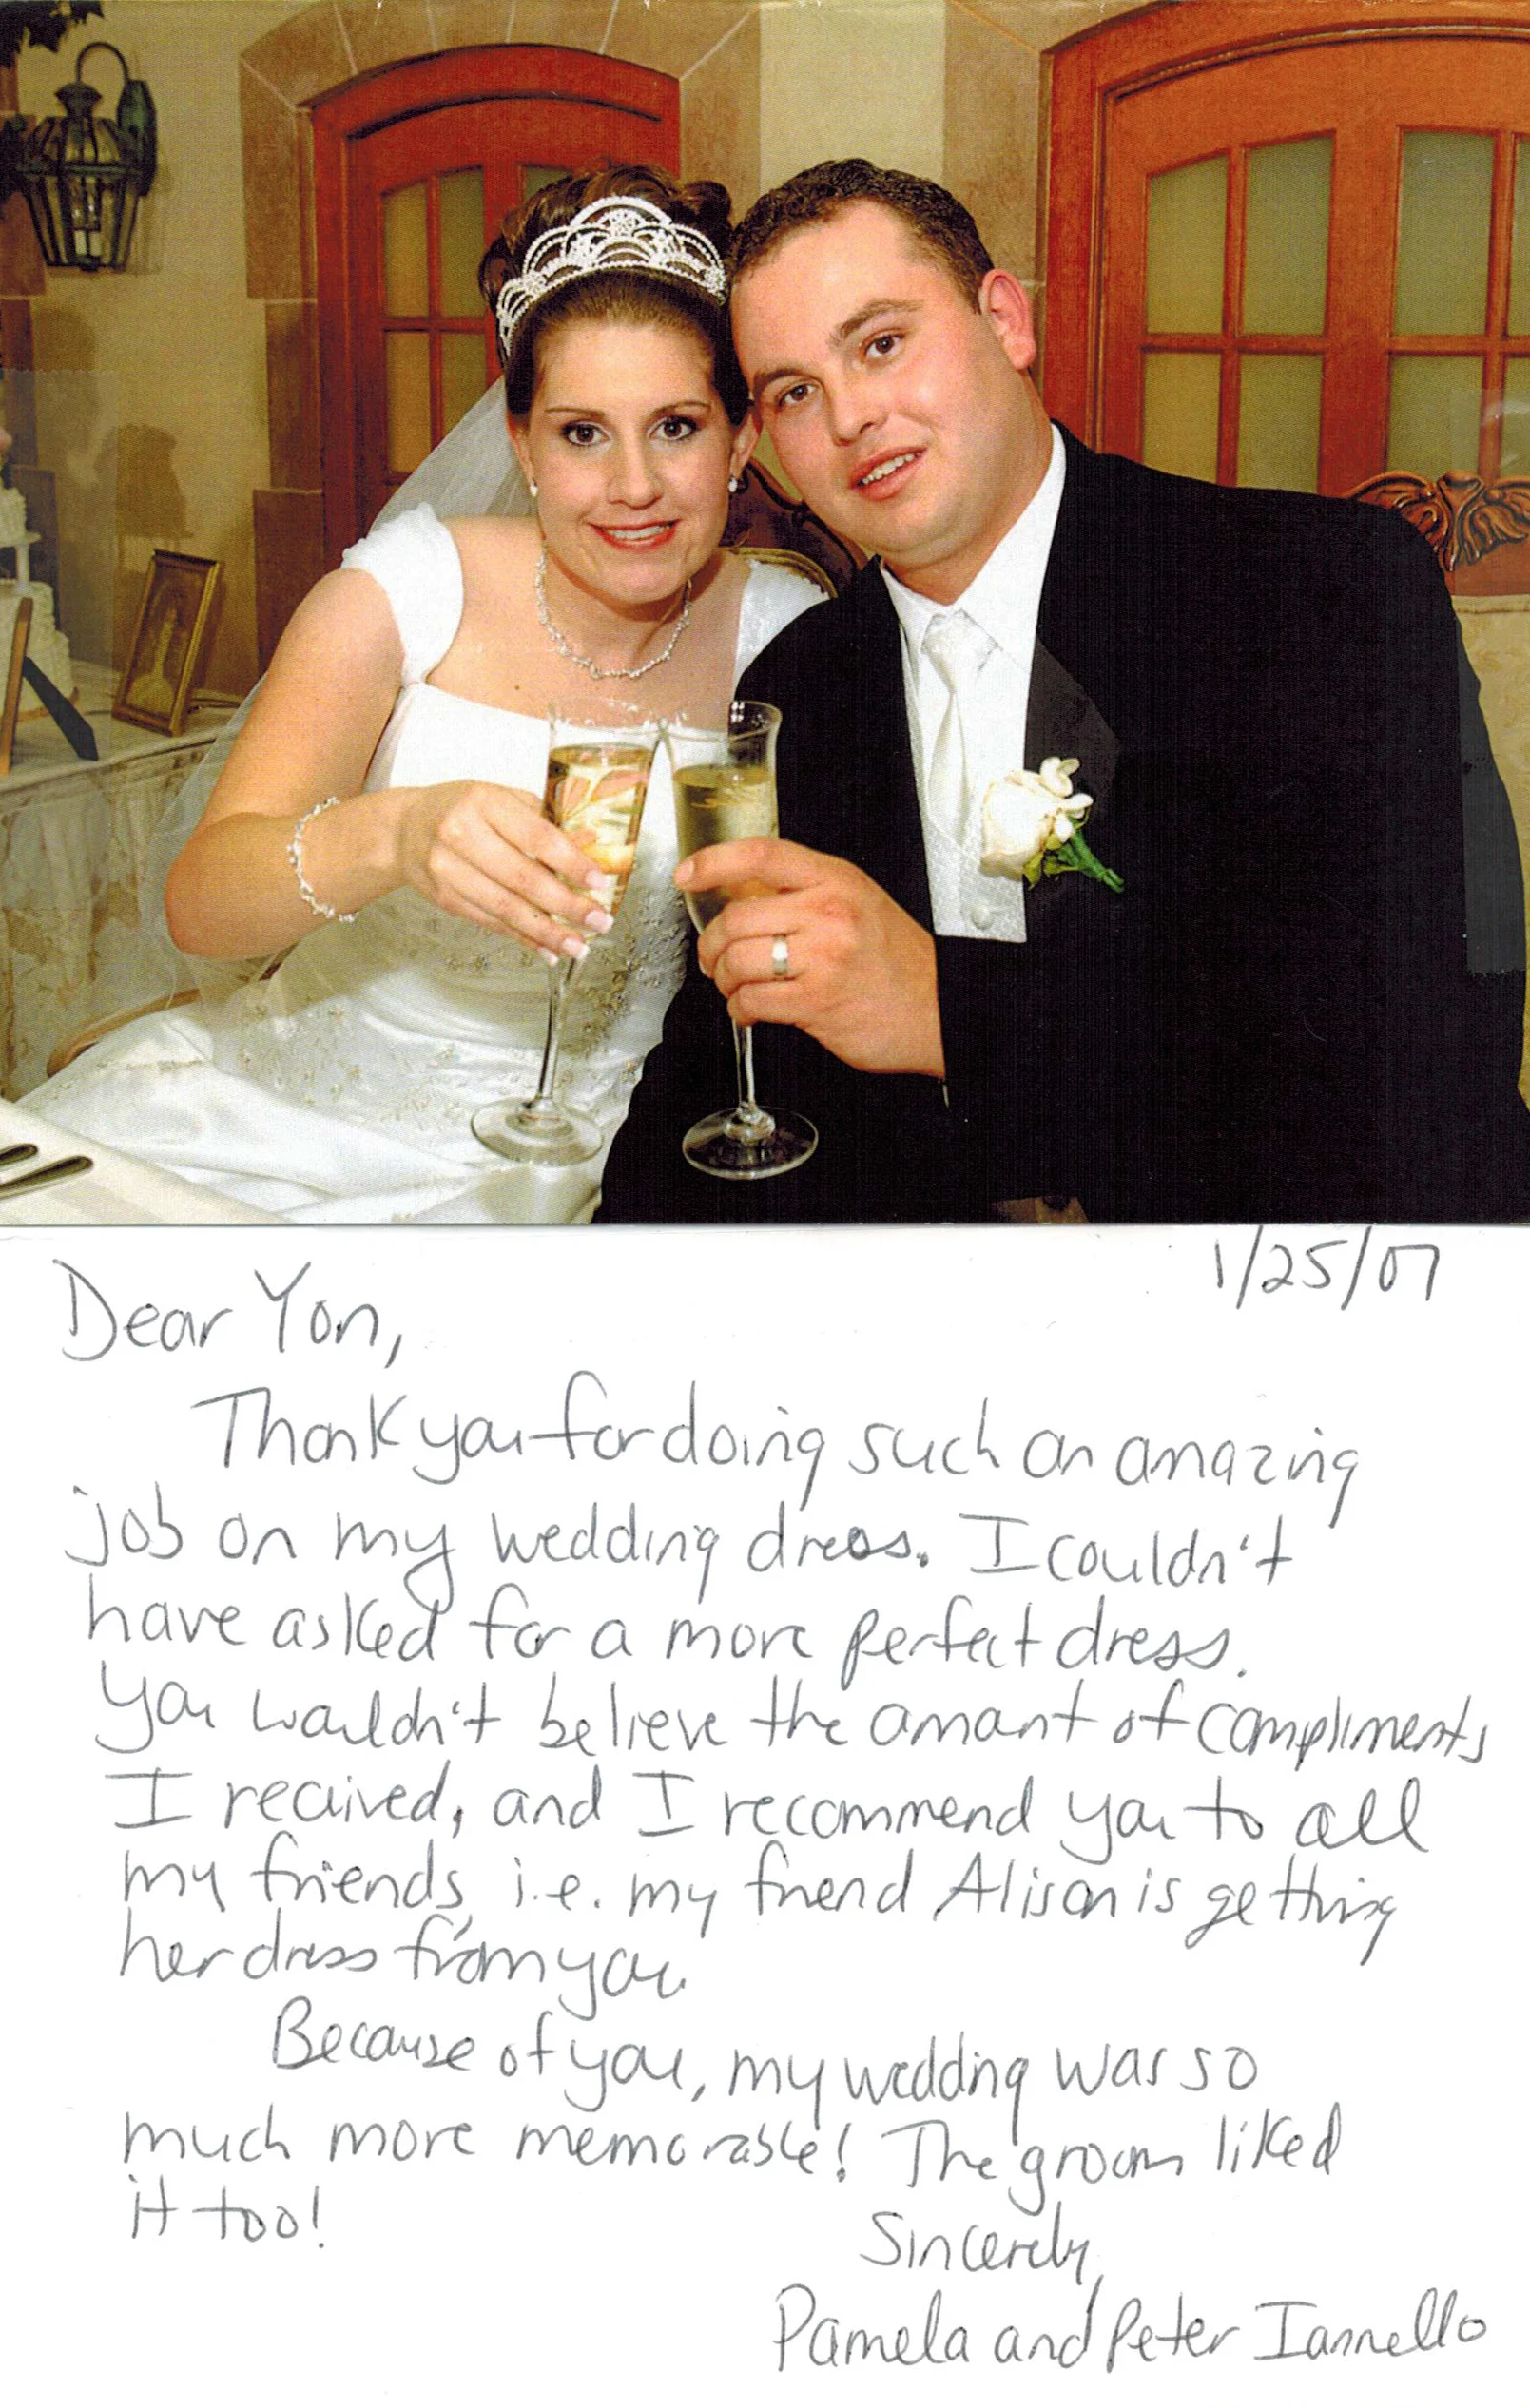 1/25/07
Dear Yon,
Thank you for doing such an amazing
job on my wedding dress. I couldn't
have asked for a more perfect dress.
You wouldn't believe the amount of compliments
I recieved, and I recommend you to all
my friends, i.e. my friend Alison is getting
her dress from you.
Because of you, my wedding was so
much more memorable! The groom liked
it too!
Sincerely,
Pamela and Peter Iannello